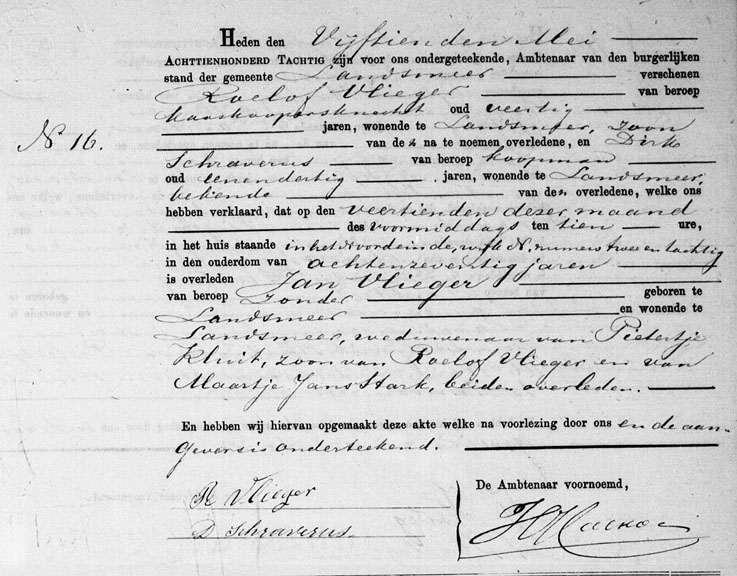 Heden den Vijftienden Mei
ACHTTIENHONDERD TACHTIG zijn voor ons ondergeteekende, Ambtenaar van den burgerlijken
stand der gemeente Landsmeer verschenen
Roelof Vlieger van beroep
kaaskoopersknecht oud veertig
N° 16. jaren, wonende te Landsmeer, zoon
van de na te noemen overledene, en Dirk
Schraverus van beroep koopman
oud eenendertig jaren, wonende te Landsmeer,
bekende van den overledene, welke ons
hebben verklaard, dat op den veertienden dezer maand
des voormiddags ten tien ure,
in het huis staande in het Noordeinde, wijk N. numero twee en tachtig
in den ouderdom van achtenzeventig jaren
is overleden Jan Vlieger
van beroep zonder geboren te
Landsmeer en wonende te
Landsmeer, weduwenaar van Pietertje
Kluit, zoon van Roelof Vlieger en van
Maartje Jans Stark, beiden overleden.
En hebben wij hiervan opgemaakt deze akte welke na voorlezing door ons en de aan-
gevers is onderteekend.
De Ambtenaar voornoemd,
R Vlieger
D Schraverus.